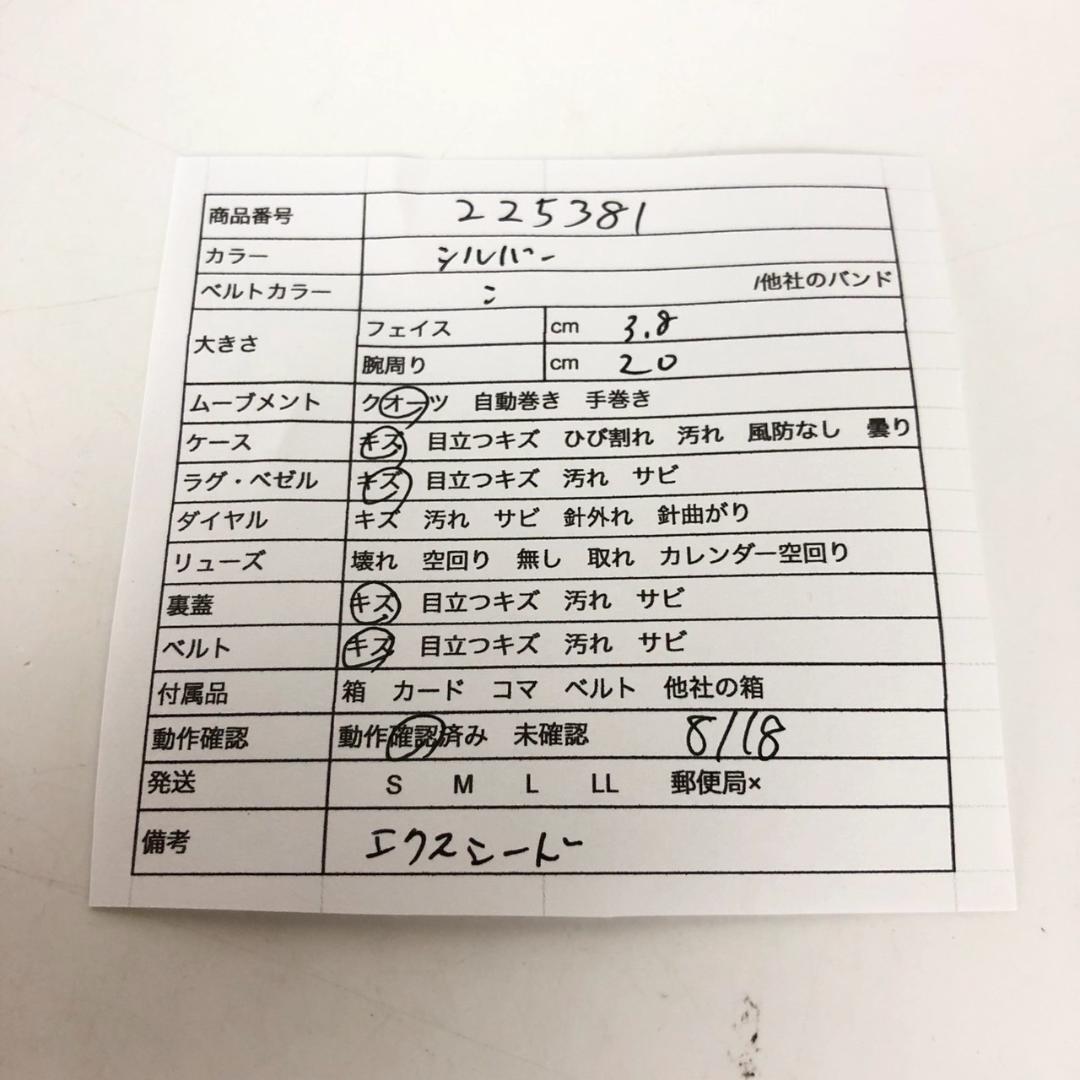 商品番号 225381
カラー シルバー
ベルトカラー 〃 /他社のバンド
大きさ フェイス cm 3.8
腕周り cm 20
ムーブメント クオーツ 自動巻き 手巻き
ケース キズ 目立つキズ ひび割れ 汚れ 風防なし 曇り
ラグ・ベゼル キズ 目立つキズ 汚れ サビ
ダイヤル キズ 汚れ サビ 針外れ 針曲がり
リューズ 壊れ 空回り 無し 取れ カレンダー空回り
裏蓋 キズ 目立つキズ 汚れ サビ
ベルト キズ 目立つキズ 汚れ サビ
付属品 箱 カード コマ ベルト 他社の箱
動作確認 動作確認済み 未確認 8/18
発送 S M L LL 郵便局×
備考 エクシード